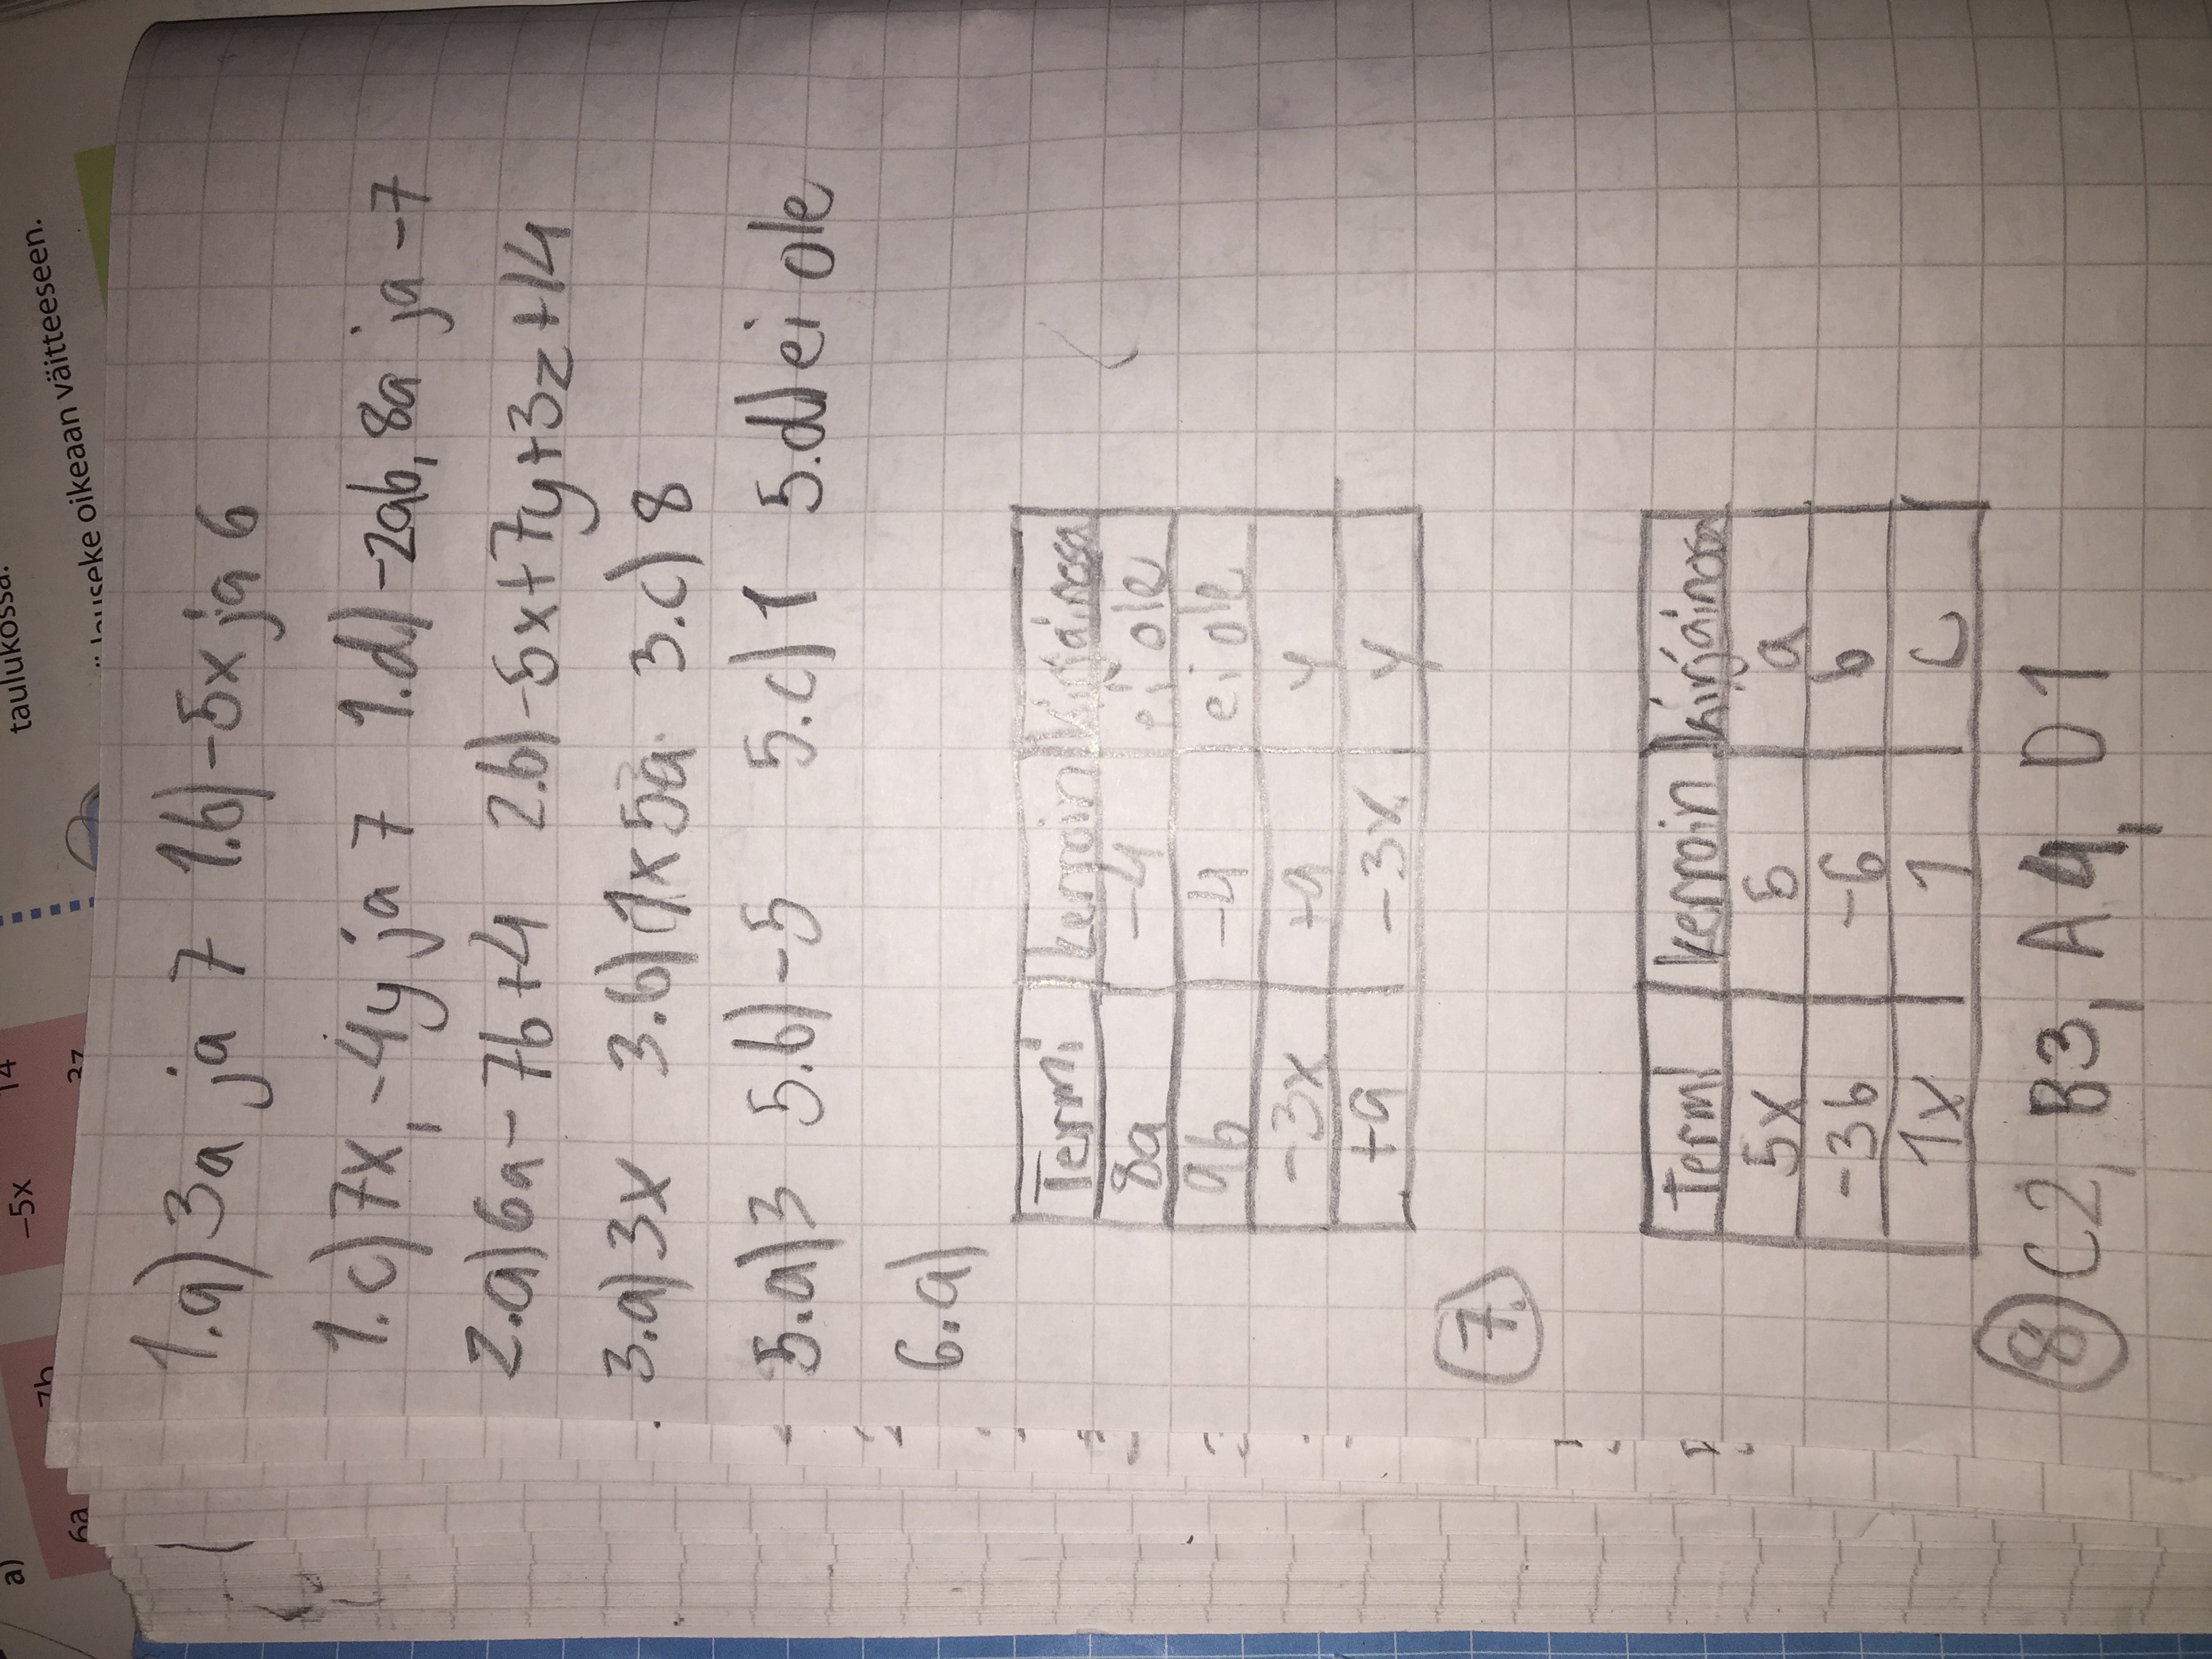 taulukossa.
lauseke oikeaan väitteeseen.
a)
6a
7b
-5x
14
3z
1.a) 3a ja 7 1.b) -5x ja 6
1.c) 7x, -4y ja 7 1.d) -2ab, 8a ja -7
2.a) 6a - 7b +4 2.b) -5x+7y+3z+14
3.a) 3x 3.b) 1x5a 3.c) 8
5.a) 3 5.b) -5 5.c) 1 5.d) ei ole
6.a)
Termi kerroin kirjainosa
8a -4 ei ole
9b -4 ei ole
-3x +9 y
+9 -3x y
7.
Termi kerroin kirjainosa
5x 5 a
-3b -6 b
1x 1 c
8) C2, B3, A4, D1